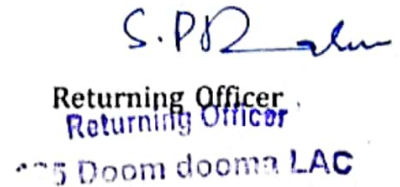 S.P
Returning Officer
Returning Officer
Doom dooma LAC